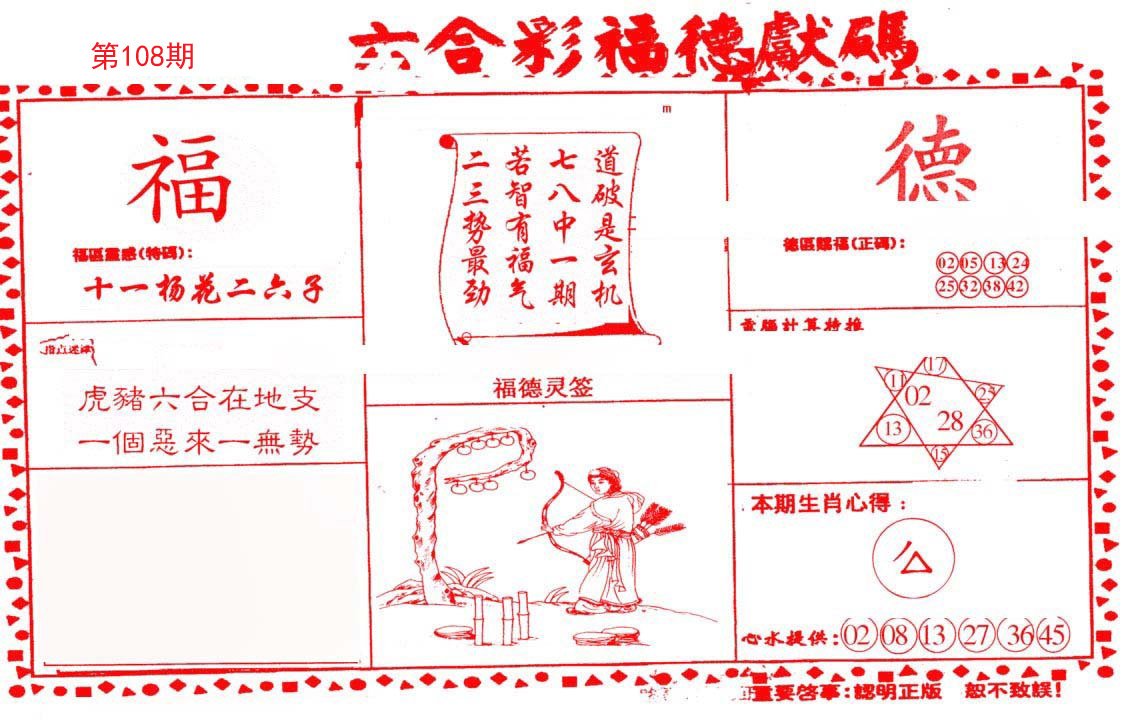 第108期
六合彩福德獻碼
福
福區靈感(特碼):
十一杨花二六子
虎豬六合在地支
一個惡來一無勢
m
道破是玄机
七八中一期
若智有福气
二三势最劲
福德灵签
德
德區賜福(正碼):
02 05 13 24
25 32 38 42
電腦計算特推
17
11 02 25
13 28 36
15
本期生肖心得:
心水提供:02 08 13 27 36 45
重要啓事:認明正版 恕不致誤!